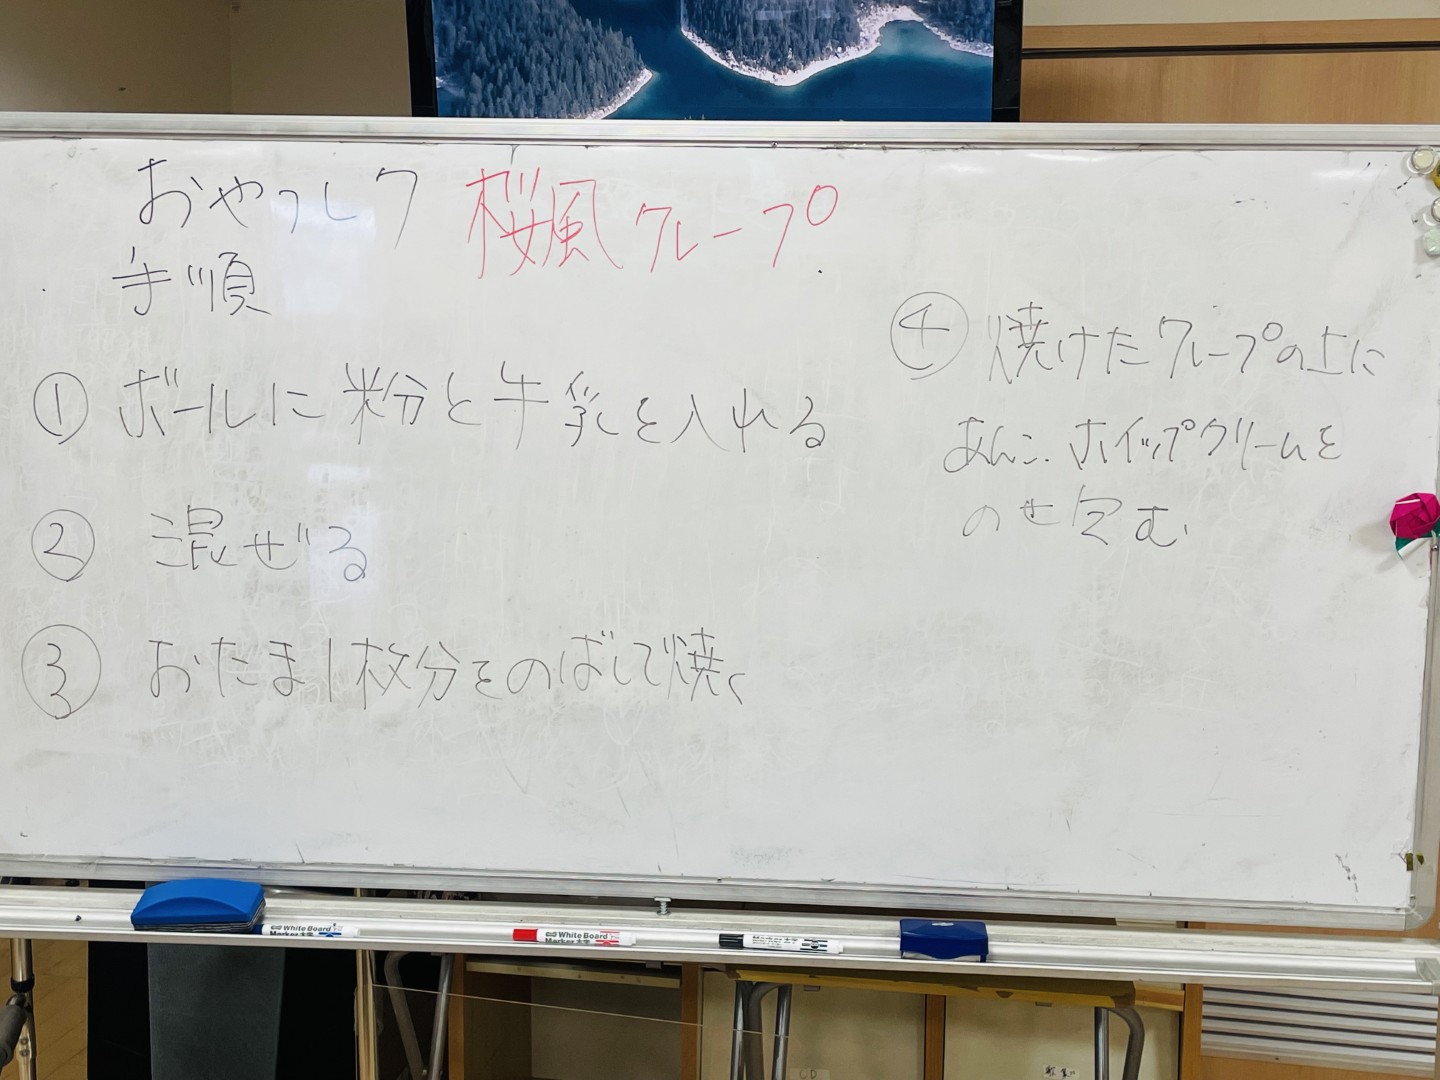 おやつレク 桜風クレープ
手順
① ボールに粉と牛乳を入れる
② 混ぜる
③ おたま1枚分をのばして焼く
④ 焼けたクレープの上に
あんこ、ホイップクリームを
のせ包む
White Board Marker 太字
White Board Marker 太字